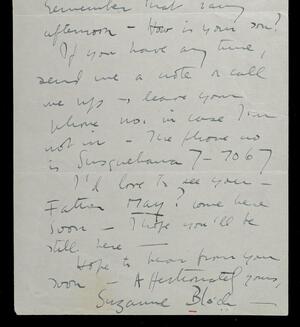 remember that rainy
afternoon – How is your son?
If you have any time,
send me a note or call
me up – leave your
phone no, in case I'm
not in – The phone no
is Susquehana 7-7067
I'd love to see you –
Father May? come here
soon – I hope you'll be
still here —
Hope to hear from you
soon – Affectionately yours,
Suzanne Bloch